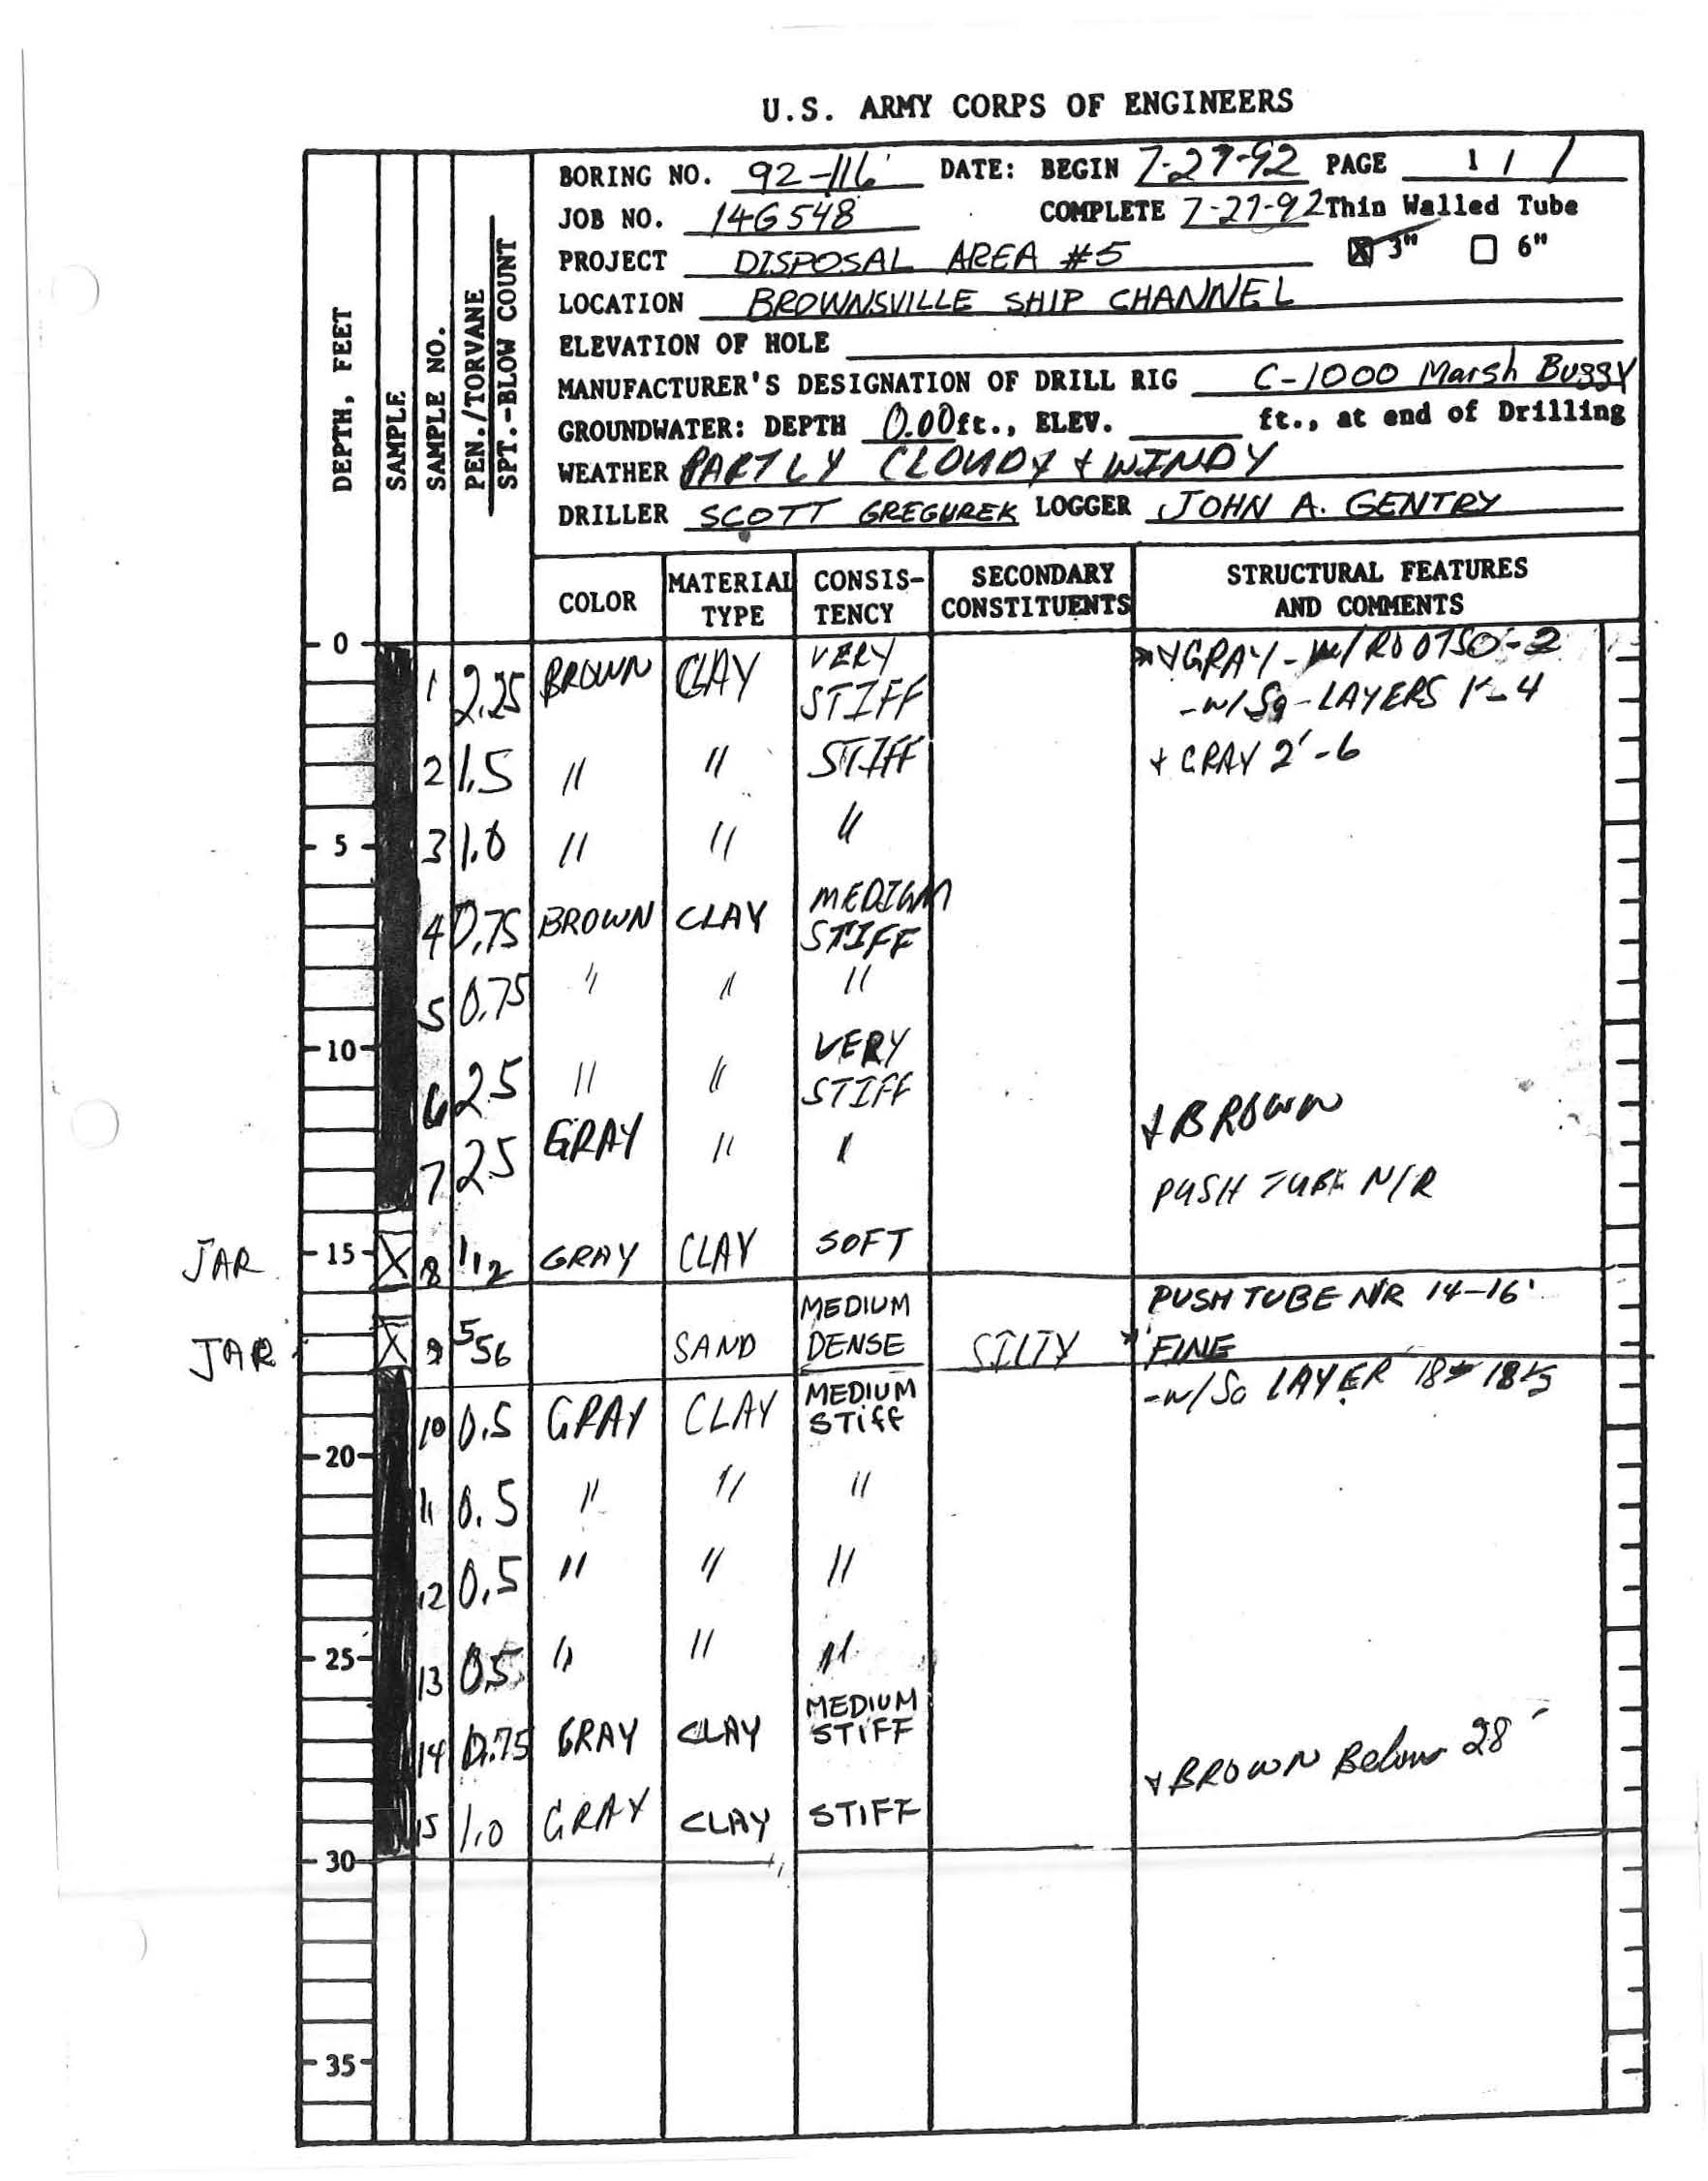 U.S. ARMY CORPS OF ENGINEERS
BORING NO. 92-116 DATE: BEGIN 7-27-92 PAGE 1 / 1
JOB NO. 14G548 COMPLETE 7-27-92 Thin Walled Tube
PROJECT DISPOSAL AREA #5 ☒ 3" ☐ 6"
LOCATION BROWNSVILLE SHIP CHANNEL
ELEVATION OF HOLE
MANUFACTURER'S DESIGNATION OF DRILL RIG C-1000 Marsh Buggy
GROUNDWATER: DEPTH 0.00 ft., ELEV. ft., at end of Drilling
WEATHER PARTLY CLOUDY + WINDY
DRILLER SCOTT GREGUREK LOGGER JOHN A. GENTRY
DEPTH, FEET
SAMPLE
SAMPLE NO.
PEN./TORVANE
SPT.-BLOW COUNT
COLOR MATERIAL TYPE CONSIS-TENCY SECONDARY CONSTITUENTS STRUCTURAL FEATURES AND COMMENTS
0
1 2.25 BROWN CLAY VERY STIFF + GRAY - W/ ROOTS 0-2
-W/ Sa - LAYERS - 4
2 1.5 " " STIFF + GRAY 2'-6
5 3 1.0 " " "
4 0.75 BROWN CLAY MEDIUM STIFF
5 0.75 " " "
10
6 2.5 " " VERY STIFF
7 2.5 GRAY " " + BROWN
PUSH TUBE N/R
JAR 15 8 1/1/2 GRAY CLAY SOFT
PUSH TUBE N/R 14-16'
JAR 9 5/5/6 SAND MEDIUM DENSE SILTY * FINE
-W/ Sa LAYER 18
10 0.5 GRAY CLAY MEDIUM STIFF
20
11 0.5 " " "
12 0.5 " " "
25 13 0.5 " " "
14 0.75 GRAY CLAY MEDIUM STIFF
+ BROWN Below 28'
15 1.0 GRAY CLAY STIFF
30
35